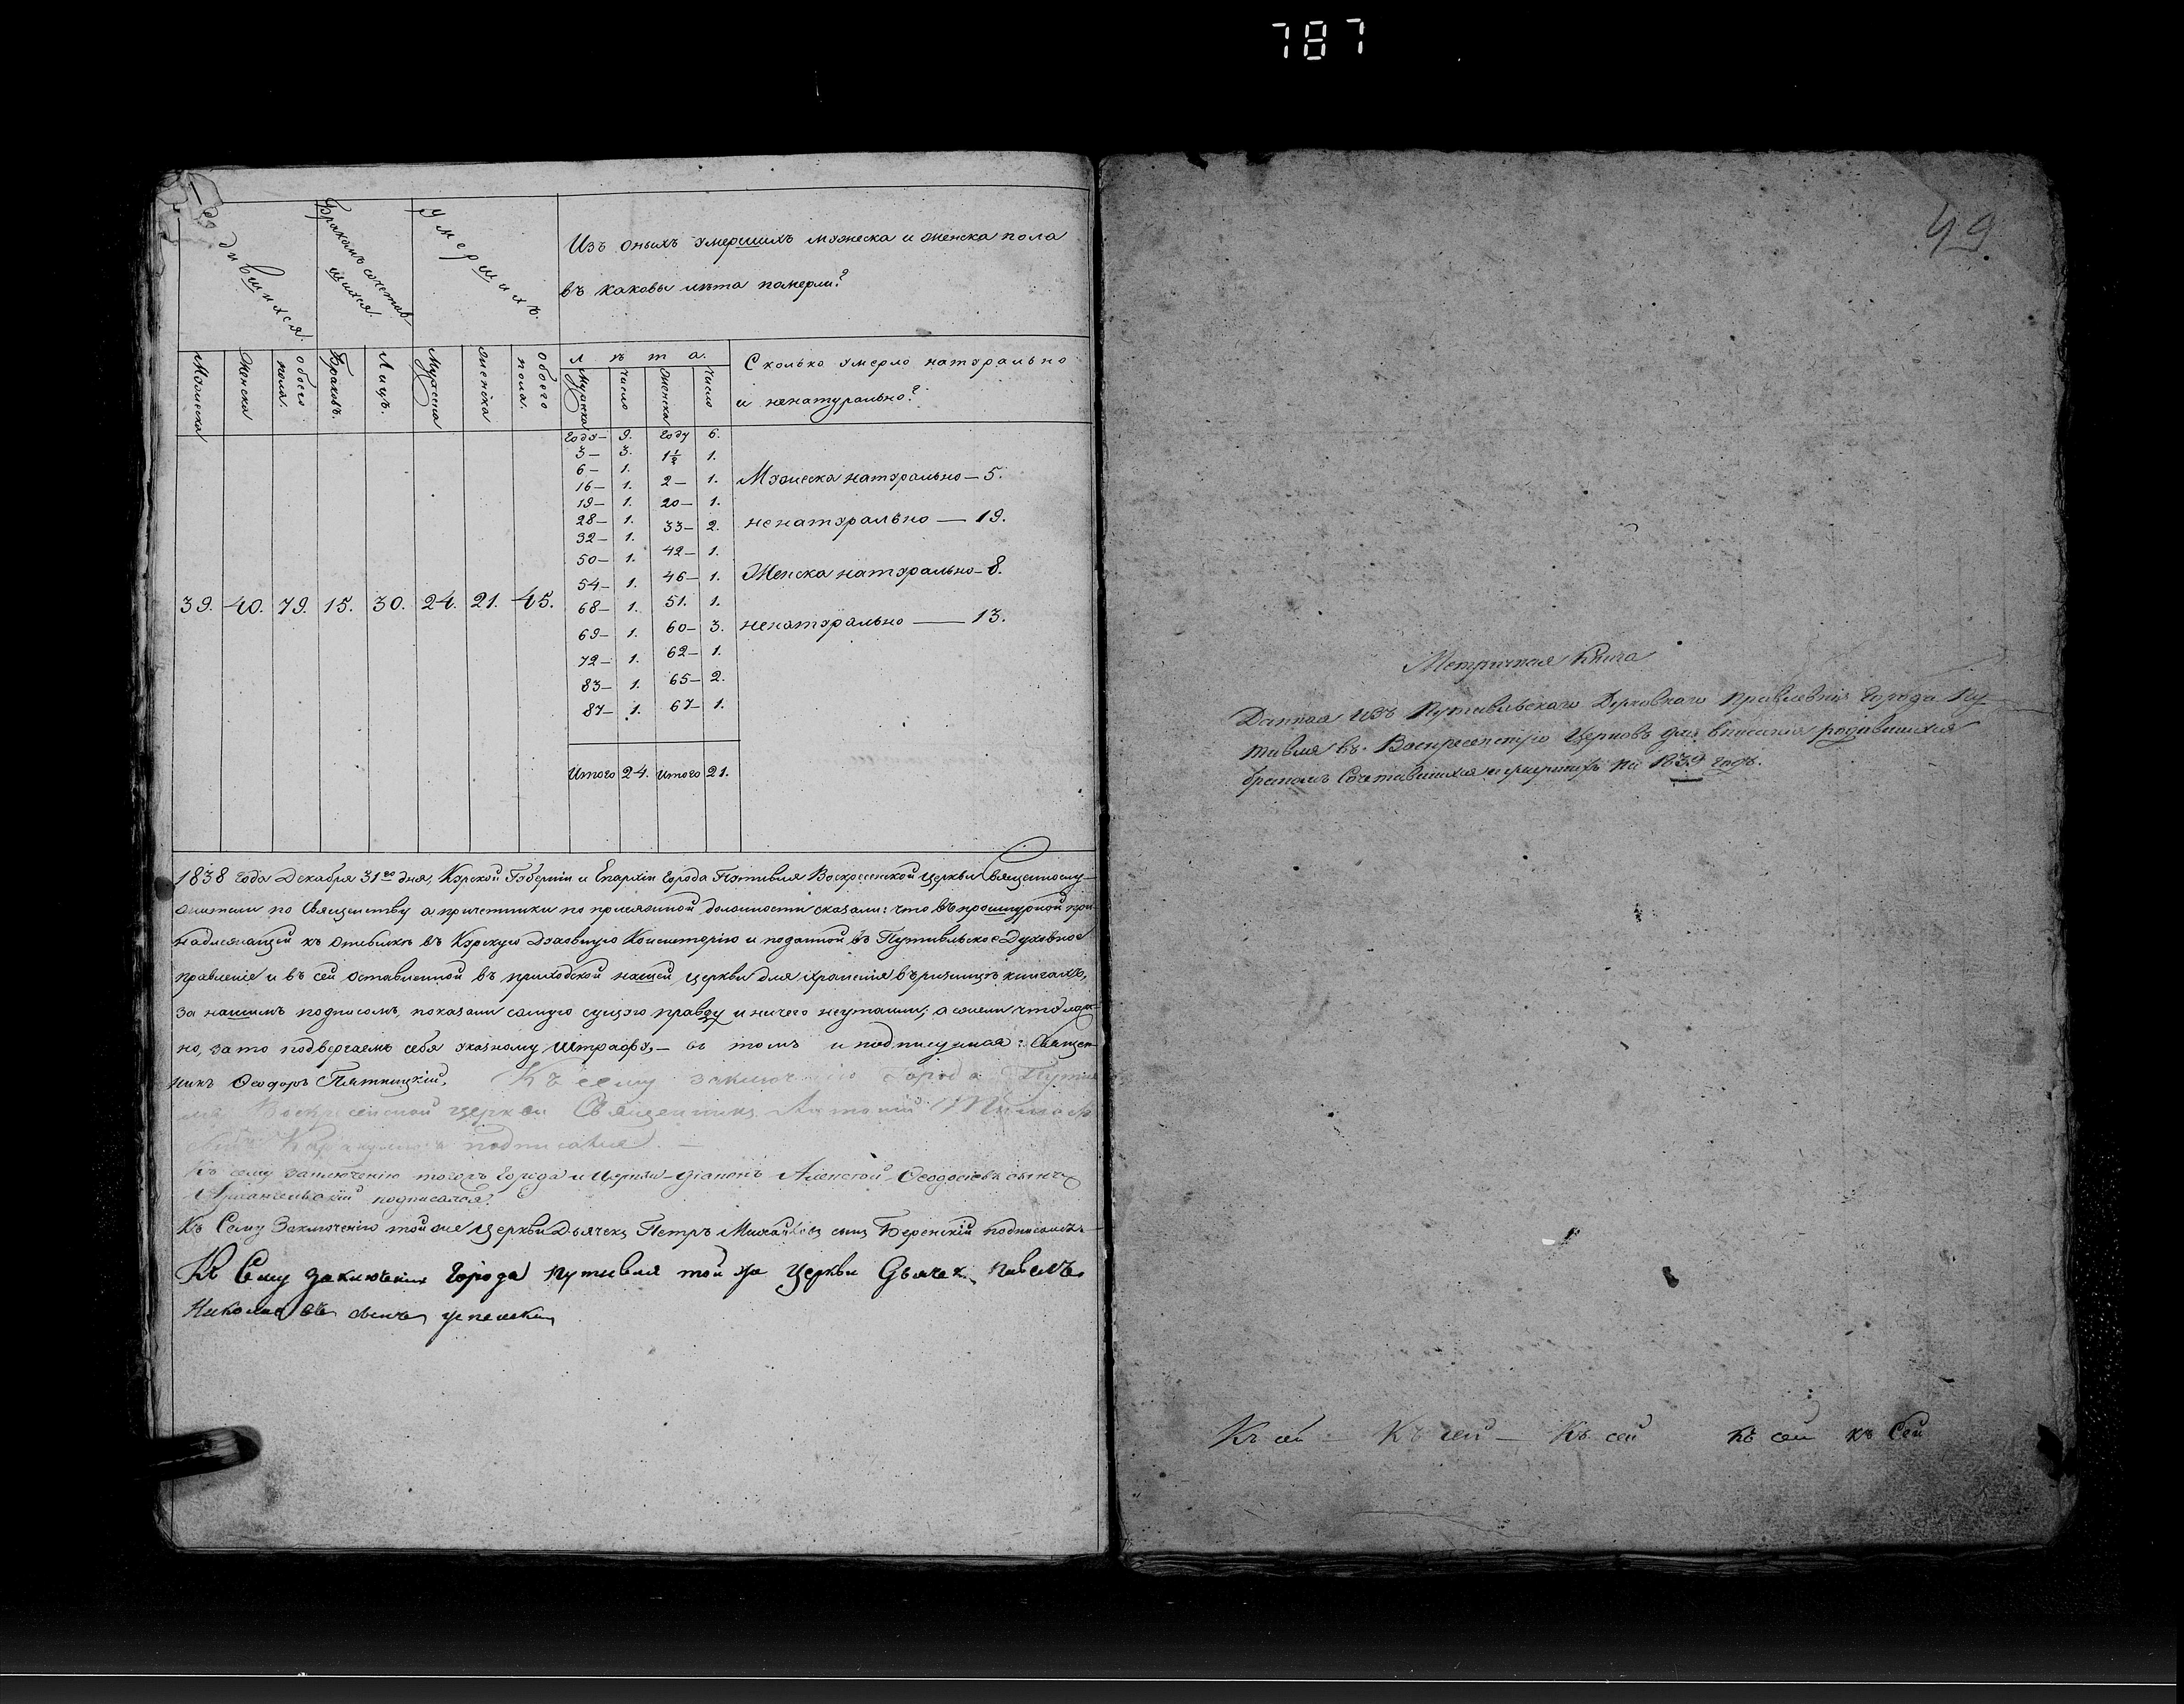 787
49
Родившихся.
Бракомъ сочетав
шихся.
Умершихъ.
Изъ оныхъ умершихъ мужеска и женска пола
въ каковы лѣта померли?
Мужеска
Женска
обоего пола.
Браковъ.
Лицъ.
Мужеска
женска
обоего пола.
лѣта.
Мужеска
число
женска
число
Сколько умерло натурально
и ненатурально?
году— 9. году 6.
3— 3. 1½ 1.
6— 1. 2— 1.
16— 1. 20— 1.
19— 1. 33— 2.
28— 1. 42— 1.
32— 1. 46— 1.
50— 1. 51. 1.
54— 1. 60— 3.
68— 1. 62— 1.
69— 1. 65— 2.
72— 1. 67— 1.
83— 1.
87— 1.
Мужеска натурально—5.
ненатурально — 19.
Женска натурально—8.
ненатурально — 13.
39. 40. 79. 15. 30. 24. 21. 45.
Итого 24. Итого 21.
1838 года Декабря 31го дня, Курской Губерніи и Епархіи города Путивля Воскресенской церкви Священнослу-
жители по Священству а причетники по присяжной должности сказали: что въ прошнурной при
надлежащей къ отсылкѣ въ Курскую Духовную Консисторію и поданной въ Путивльское Духовное
правленіе и въ сей оставленной въ приходской нашей церкви для храненія въ ризницѣ книгахъ,
за нашимъ подписомъ, показали самую сущую правду и ничего неутаили; а ежели что лож-
но, за то подвергаемъ себя указному штрафу,— въ томъ и подписуемся: Священ-
никъ Ѳеодоръ Пятницкій. Къ сему заключенію Города Путив
ля Воскресенской церкви Священникъ Антоній
подписался. —
Къ сему заключенію тогожъ города и церкви діаконъ Алексѣй Ѳеодосіевъ сынъ
Архангельскій подписался.
Къ Сему Заключенію той же церкви Дьячекъ Петръ Михайловъ сынъ Беренскій подписалсь
Къ Сему заключенію Города путивля той же церкви дьячек павелъ
Николаевъ сынъ успенски
Метричная Книга
Данная изъ Путивльскаго Духовнаго Правленія Города Пу
тивля въ Воскресенскую Церковь для вписанія родившихся
бракомъ Сочетавшихся и умершихъ на 1839 годъ.
Къ сей — Къ сей — Къ сей къ сей къ Сей